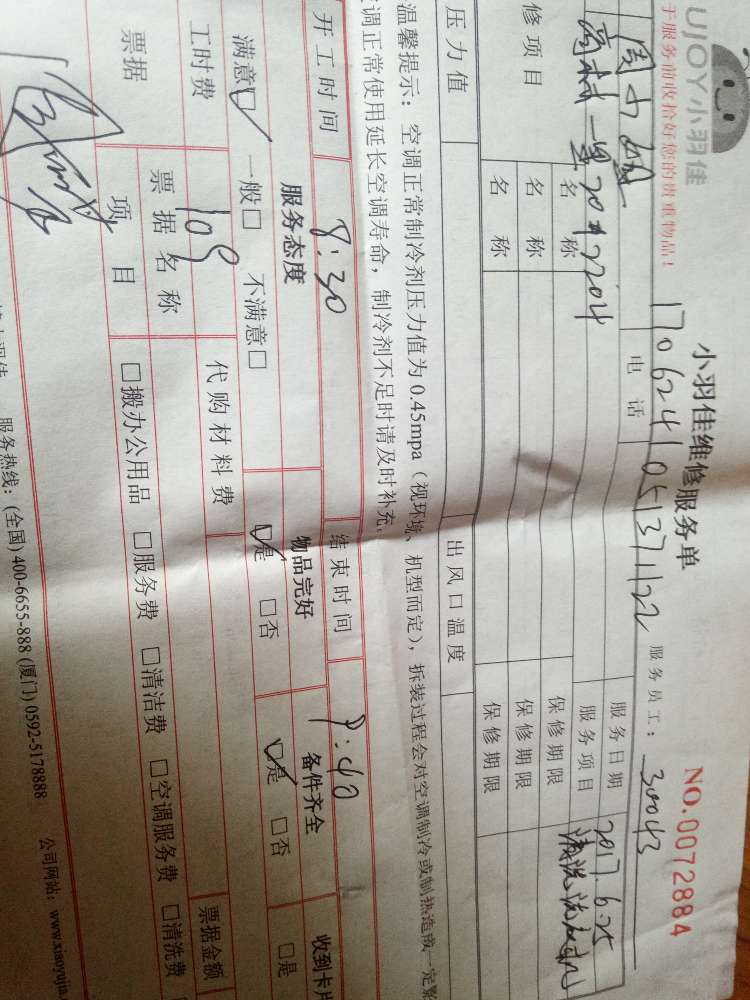 UJOY小羽佳
小羽佳维修服务单
NO.0072884
于服务前收拾好您的贵重物品！
服务员工：30043
电话 17062410513711122
服务日期 2017.6.25
服务项目 清洗洗衣机
修项目
名称 保修期限
名称 保修期限
名称 保修期限
压力值 出风口温度
温馨提示：空调正常制冷剂压力值为0.45mpa（视环境、机型而定），拆装过程会对空调制冷或制热造成一定影
调正常使用延长空调寿命，制冷剂不足时请及时补充。
开工时间 8:30 结束时间 9:40
服务态度 物品完好 备件齐全 收到卡片
满意☑ 一般□ 不满意□ ☑是 □否 ☑是 □否 □是
工时费 109 代购材料费
票据 票据名称 票据金额
项目 □搬办公用品 □服务费 □清洁费 □空调服务费 □清洗费
服务热线：(全国) 400-6655-888 (厦门) 0592-5178888 公司网站：www.xiaoyujia